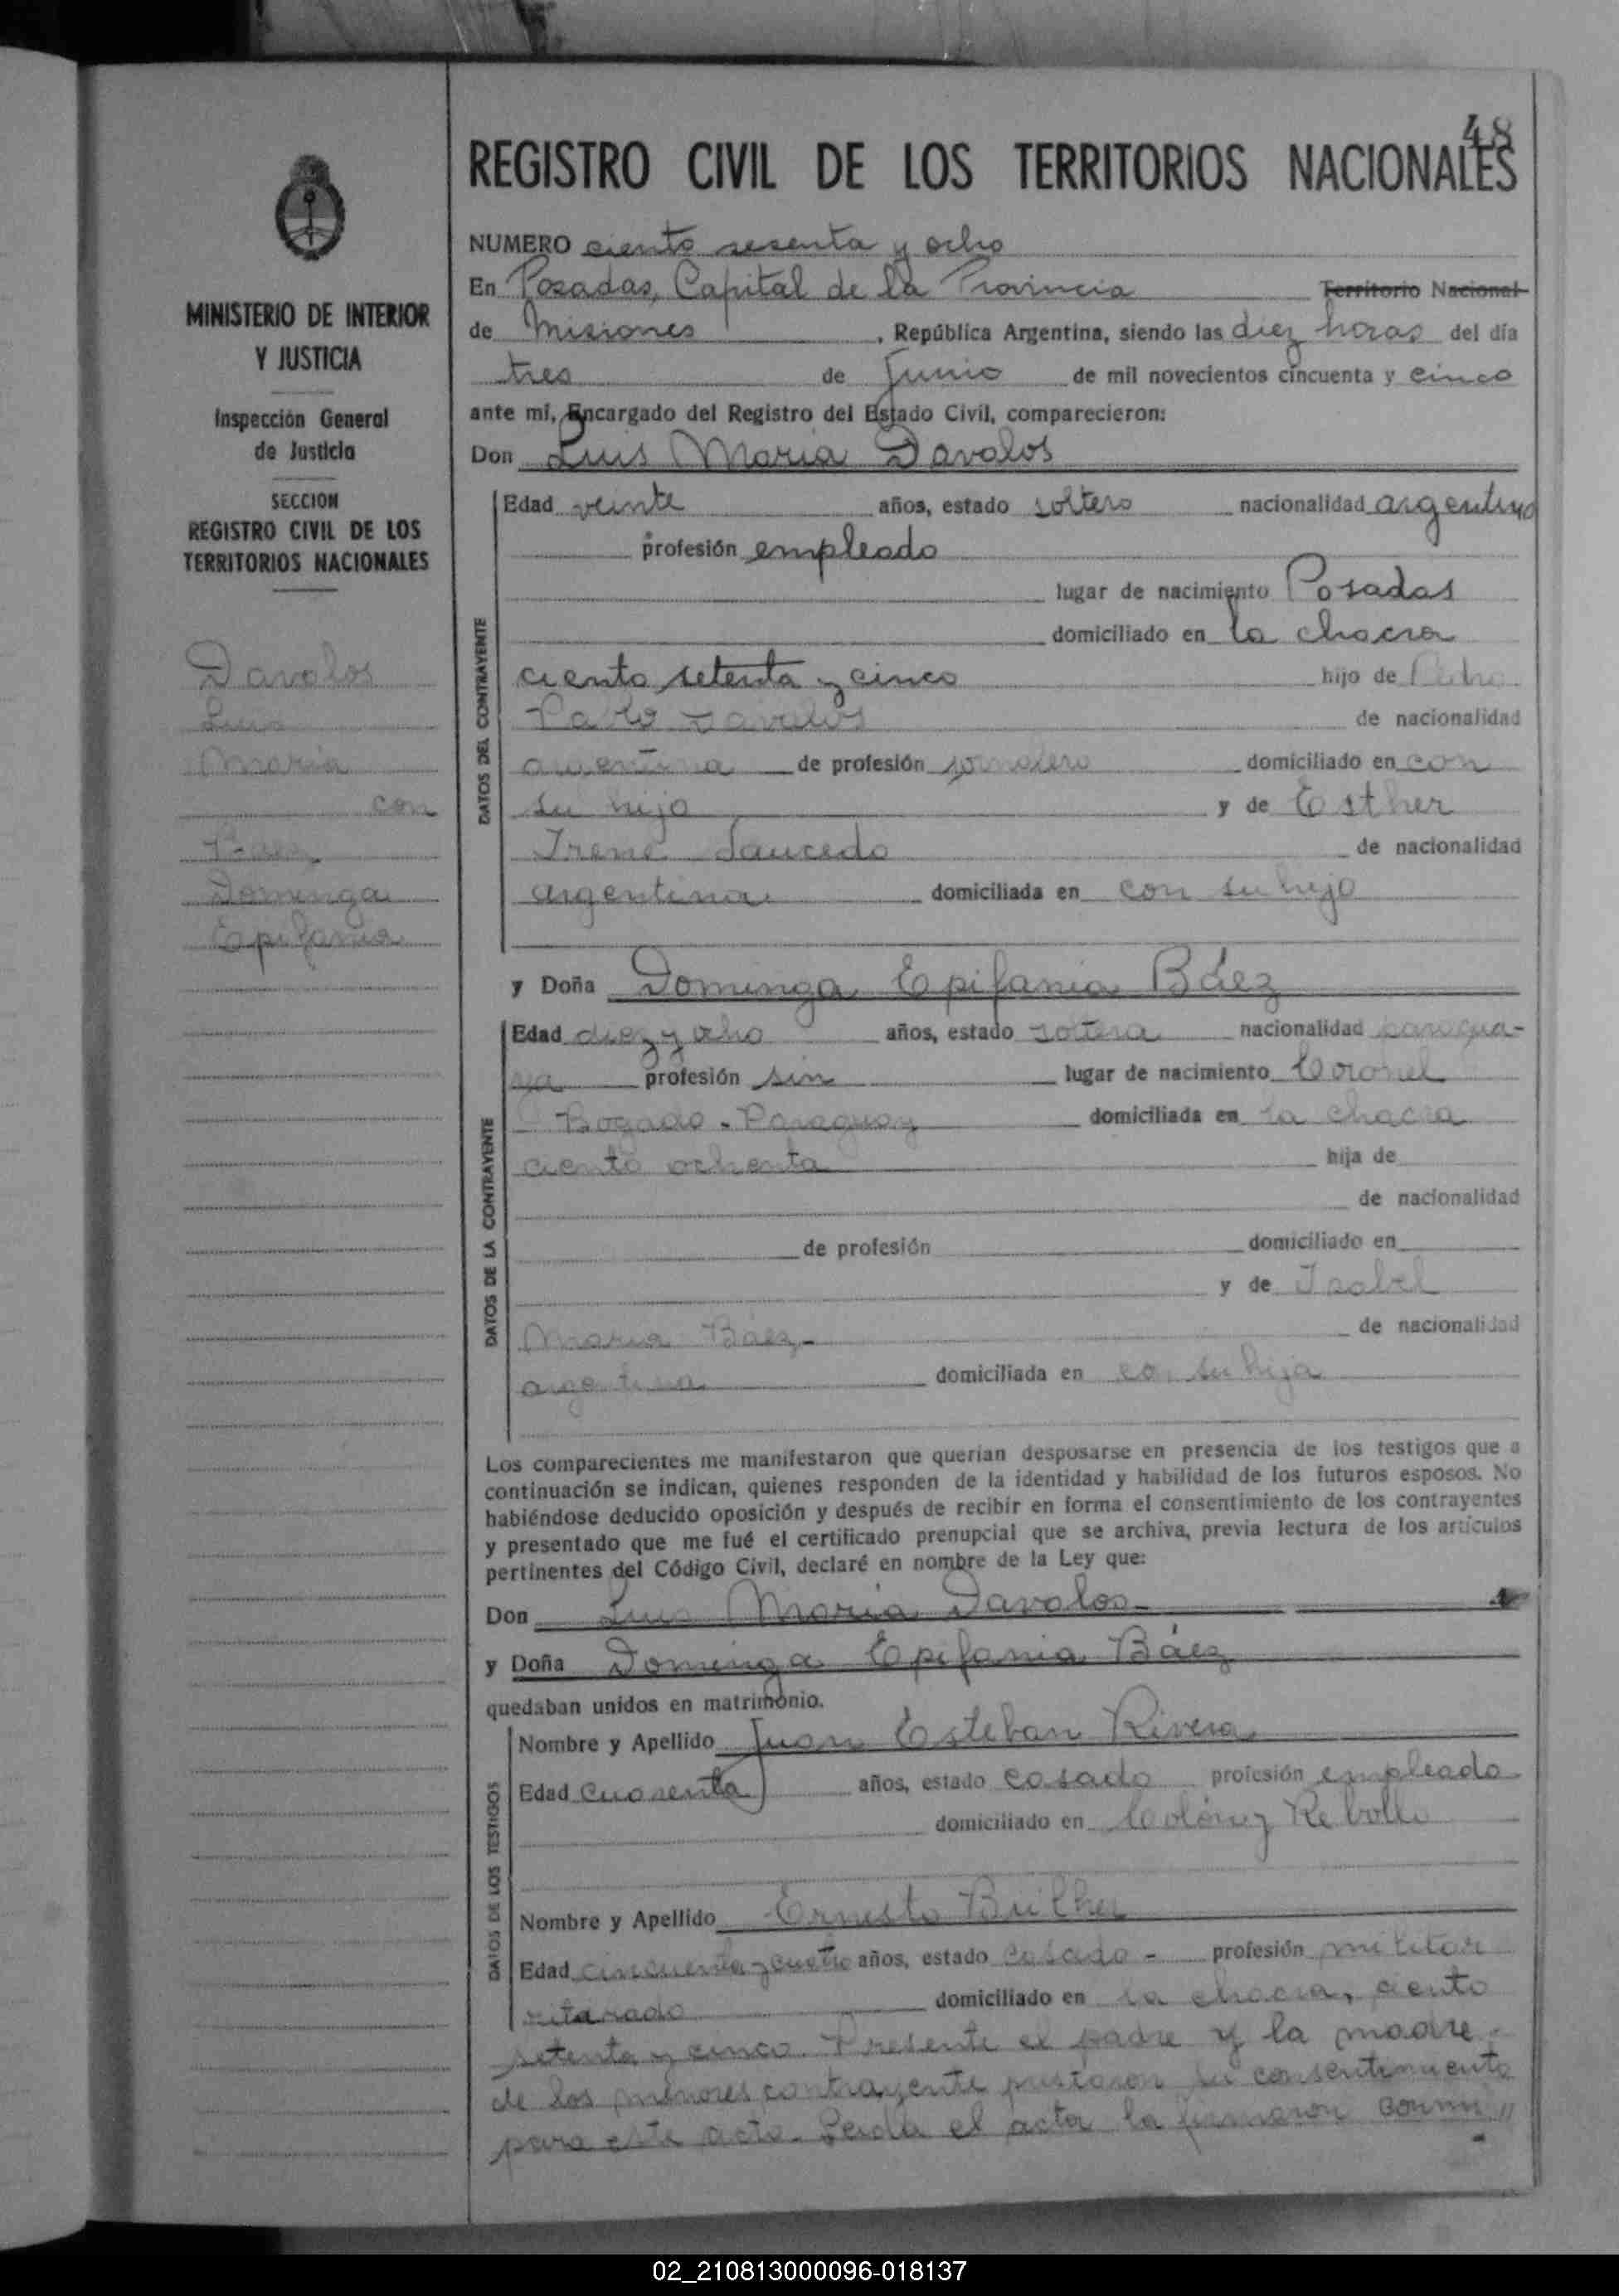 48
REGISTRO CIVIL DE LOS TERRITORIOS NACIONALES
MINISTERIO DE INTERIOR
Y JUSTICIA
Inspección General
de Justicia
SECCION
REGISTRO CIVIL DE LOS
TERRITORIOS NACIONALES
Davalos
Luis
Maria
con
Báez
Dominga
Epifania
NUMERO ciento sesenta y ocho
En Posadas, Capital de la Provincia Territorio Nacional
de Misiones, República Argentina, siendo las diez horas del día
tres de Junio de mil novecientos cincuenta y cinco
ante mí, Encargado del Registro del Estado Civil, comparecieron:
Don Luis Maria Davalos
DATOS DEL CONTRAYENTE
Edad veinte años, estado soltero nacionalidad argentino
profesión empleado
lugar de nacimiento Posadas
domiciliado en la chacra
ciento setenta y cinco hijo de Pedro
Pablo Davalos de nacionalidad
argentina de profesión jornalero domiciliado en con
su hijo y de Esther
Irene Saucedo de nacionalidad
argentina domiciliada en con su hijo
y Doña Dominga Epifania Báez
DATOS DE LA CONTRAYENTE
Edad diez y ocho años, estado soltera nacionalidad paragua-
ya profesión sin lugar de nacimiento Coronel
Bogado - Paraguay domiciliada en la chacra
ciento ochenta hija de
de nacionalidad
de profesión domiciliado en
y de Isabel
Maria Báez - de nacionalidad
argentina domiciliada en con su hija
Los comparecientes me manifestaron que querían desposarse en presencia de los testigos que a
continuación se indican, quienes responden de la identidad y habilidad de los futuros esposos. No
habiéndose deducido oposición y después de recibir en forma el consentimiento de los contrayentes
y presentado que me fué el certificado prenupcial que se archiva, previa lectura de los artículos
pertinentes del Código Civil, declaré en nombre de la Ley que:
Don Luis Maria Davalos -
y Doña Dominga Epifania Báez
quedaban unidos en matrimonio.
DATOS DE LOS TESTIGOS
Nombre y Apellido Juan Esteban Rivera
Edad cuarenta años, estado casado profesión empleado
domiciliado en Colón y Rebollo
Nombre y Apellido Ernesto
Edad cincuenta y cuatro años, estado casado - profesión militar
ritirado domiciliado en la chacra, ciento
setenta y cinco. Presente el padre y la madre
de los menores contrayente prestaron su consentimiento
para este acto. Leida el acta la firmaron
02_210813000096-018137